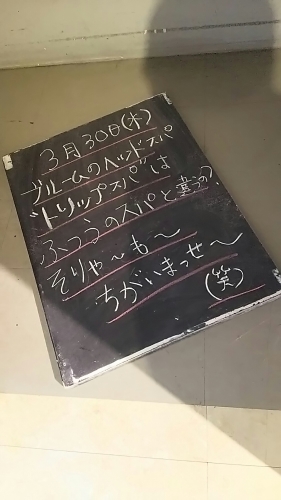 3月30日(木)
ブルームのヘッドスパ
"トリップスパ"は
ふつうのスパと違うの?
そりゃ〜も〜
ちがいまっせ〜
(笑)